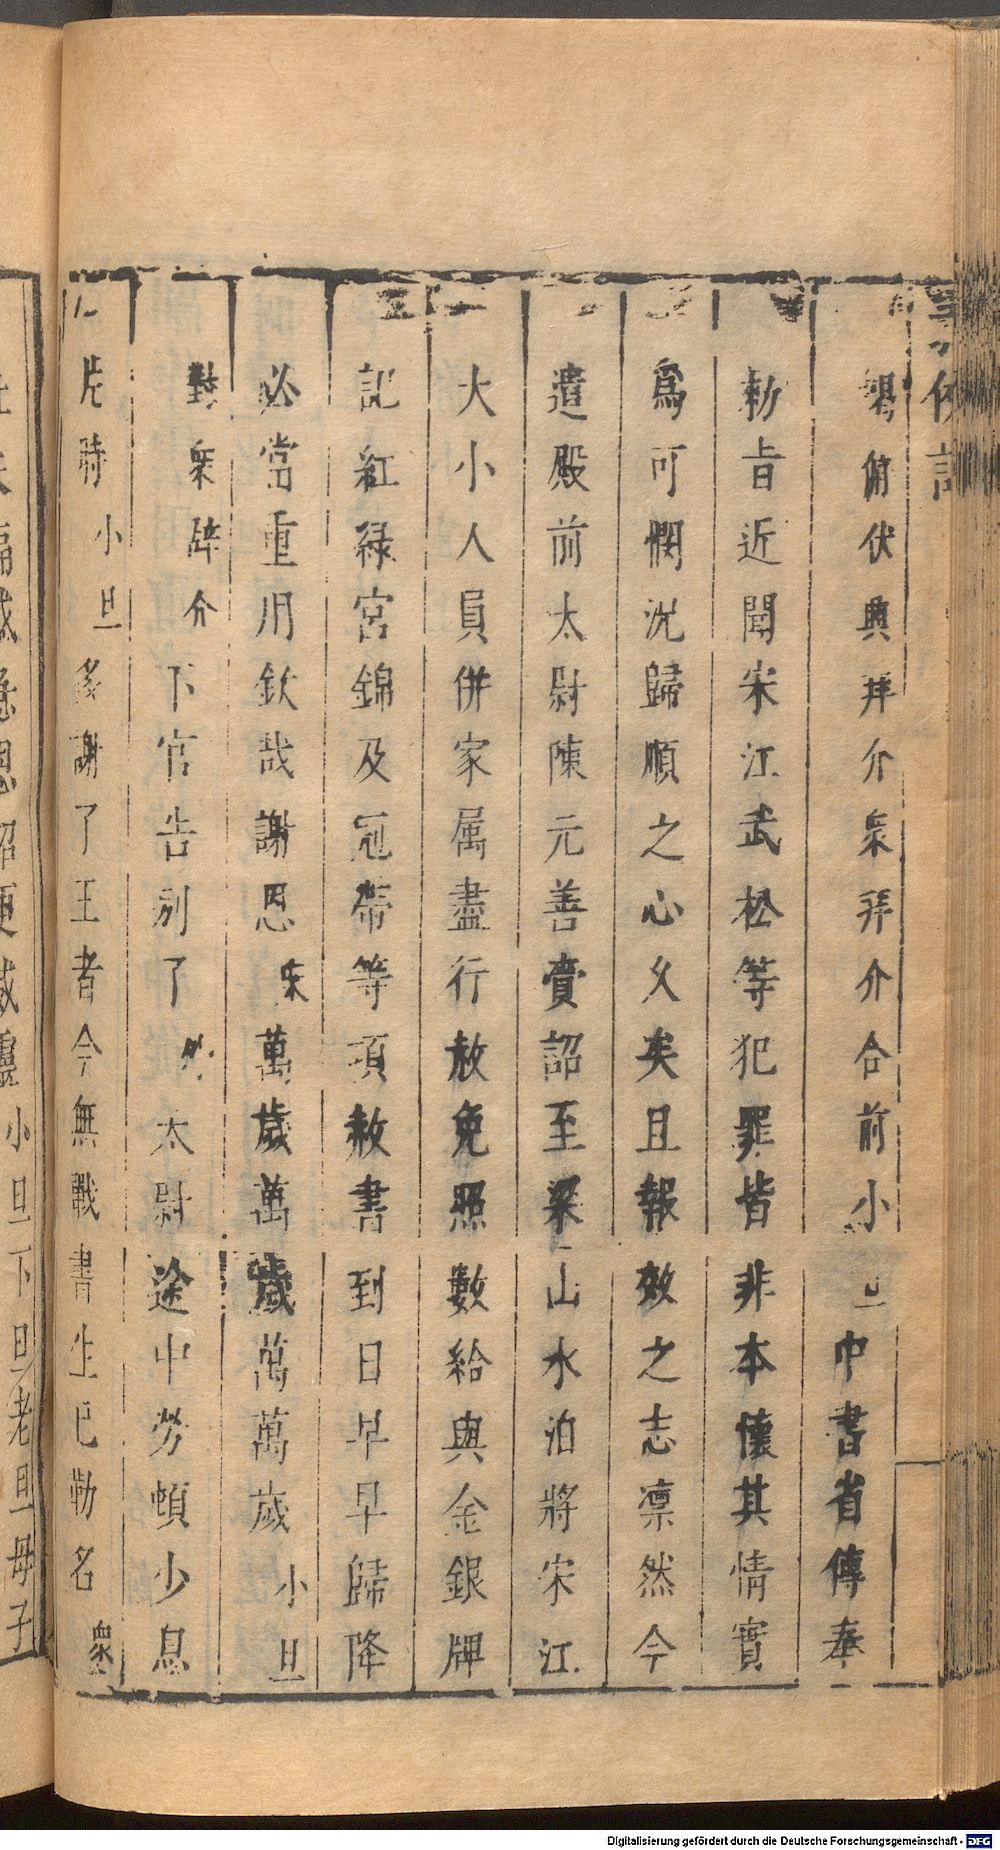 揭俯伏興拜介衆拜介合前小旦中書省傳奉
勅旨近聞宋江武松等犯罪皆非本懷其情實
爲可憫況歸順之心久矣且報效之志凛然今
遣殿前太尉陳元善賫詔至梁山水泊將宋江
大小人員併家属盡行赦免照數給與金銀牌
記紅緑宮錦及冠帶等項赦書到日早早歸降
必當重用欽哉謝恩 萬歲萬歲萬萬歲小旦
對衆辞介下官告别了 太尉途中勞頓少息
片時小旦多謝了王者今無戰書生已勒名衆
小旦下旦老旦母子
Digitalisierung gefördert durch die Deutsche Forschungsgemeinschaft - DFG